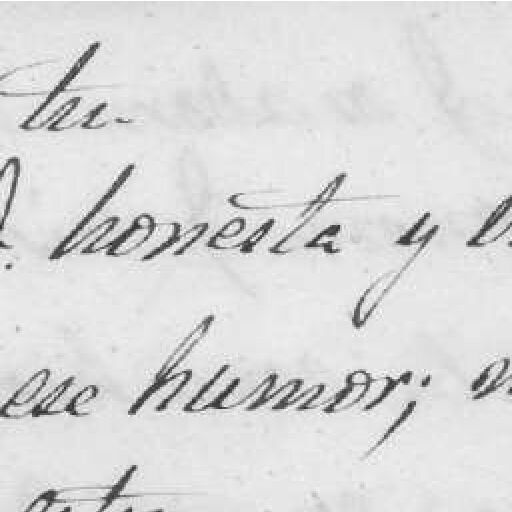 tu-
honesta y
ese humor;